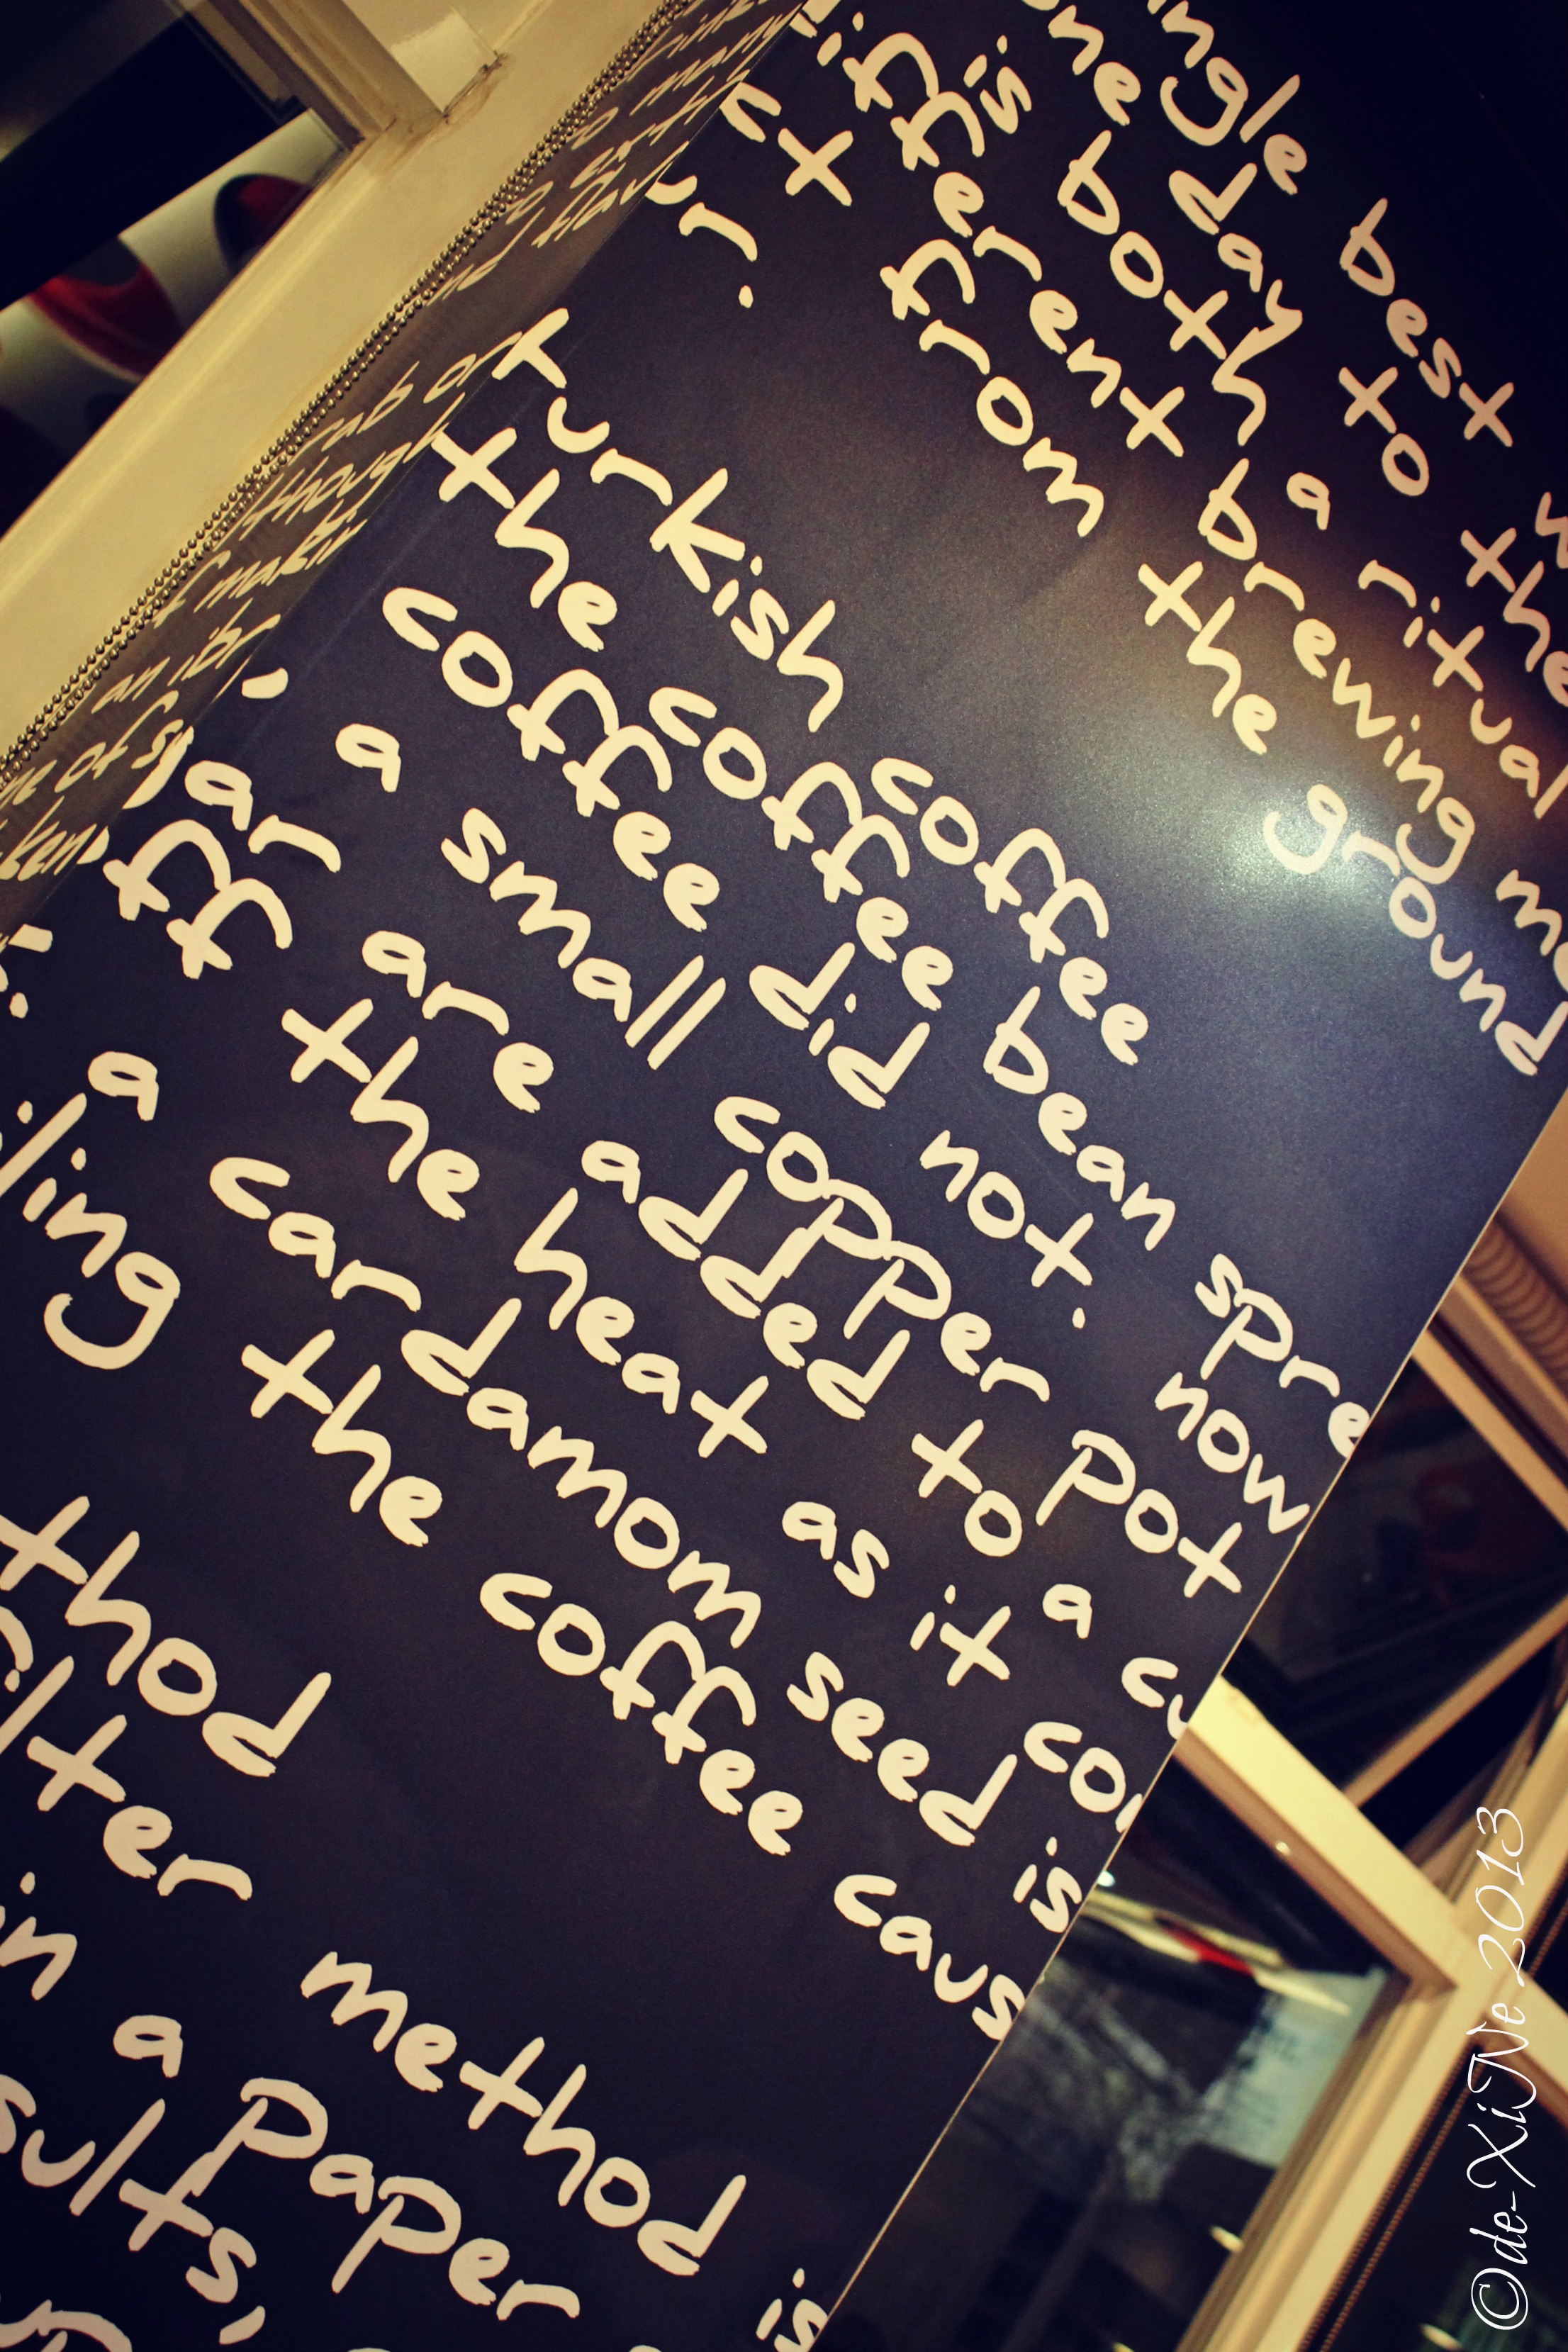 ngle best
one day to the
is both a ritual
erent brewing
from the ground
ur.
Turkish coffee
the coffee bean spre
coffee did not. now
, a small copper pot
ar are added to a cu
ff the heat as it
a cardamom seed is
ling the coffee caus
thod
ilter method is
in a paper
sults,
to many
rab
though
f makin
an ibr
©de-XiNe 2013